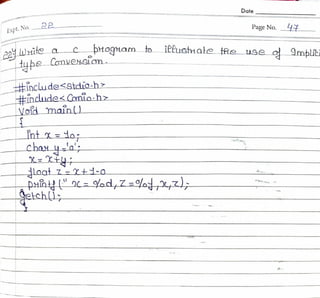 Date
Expt. No. 22
Page No. 47
Write a c program to illustrate the use of Implicit
type Conversion.
#include<stdio.h>
#include<Conio.h>
Void main()
{
int x = 10;
char y='a';
x= x+y;
float z = x+1.0
printf(" x= %d, z =%f, x,z);
getch();
}